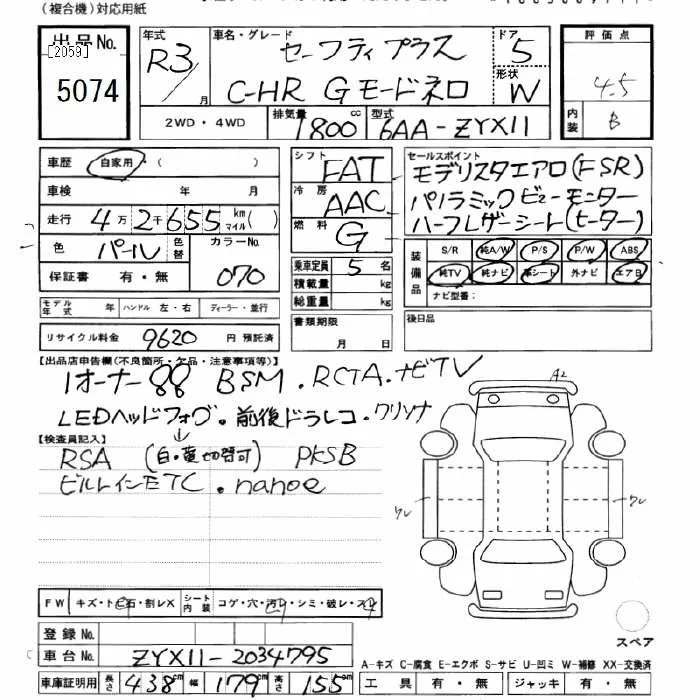 (複合機)対応用紙
出品No. [2059] 5074
年式 R3/ 月
車名・グレード セーフティプラス C-HR Gモードネロ
ドア 5
形状 W
評価点 4.5
内装 B
2WD・4WD
排気量 1800 cc
型式 6AA-ZYX11
車歴 自家用・( )
車検 年 月
走行 4万2千655 km マイル( )
色 パール 色替 カラーNo. 070
保証書 有・無
モデル年式 年 ハンドル 左・右 ディーラー・並行
リサイクル料金 9620 円 預託済
シフト FAT
冷房 AAC
燃料 G
乗車定員 5 名
積載量 kg
総重量 kg
書類期限 月 日
セールスポイント
モデリスタエアロ(FSR)
パノラミックビューモニター
ハーフレザーシート(ヒーター)
装備品 S/R 純A/W P/S P/W ABS
純TV 純ナビ 革シート 外ナビ エアB
ナビ型番:
後日品
【出品店申告欄(不良箇所・欠品・注意事項等)】
1オーナー BSM.RCTA.ナビTV
LEDヘッドフォグ.前後ドラレコ.クリソナ
【検査員記入】
RSA (白・黄切替可) PKSB
ビルトインETC.nanoe
A2
ワレ
ワレ
FW キズ・ト石・割レX シート内装 コゲ・穴・汚レ・シミ・破レ・スレ
登録No.
車台No. ZYX11-2034795
車庫証明用 長さ 438 cm 幅 179 cm 高さ 155 cm
スペア
A-キズ C-腐食 E-エクボ S-サビ U-凹ミ W-補修 XX-交換済
工具 有・無 ジャッキ 有・無